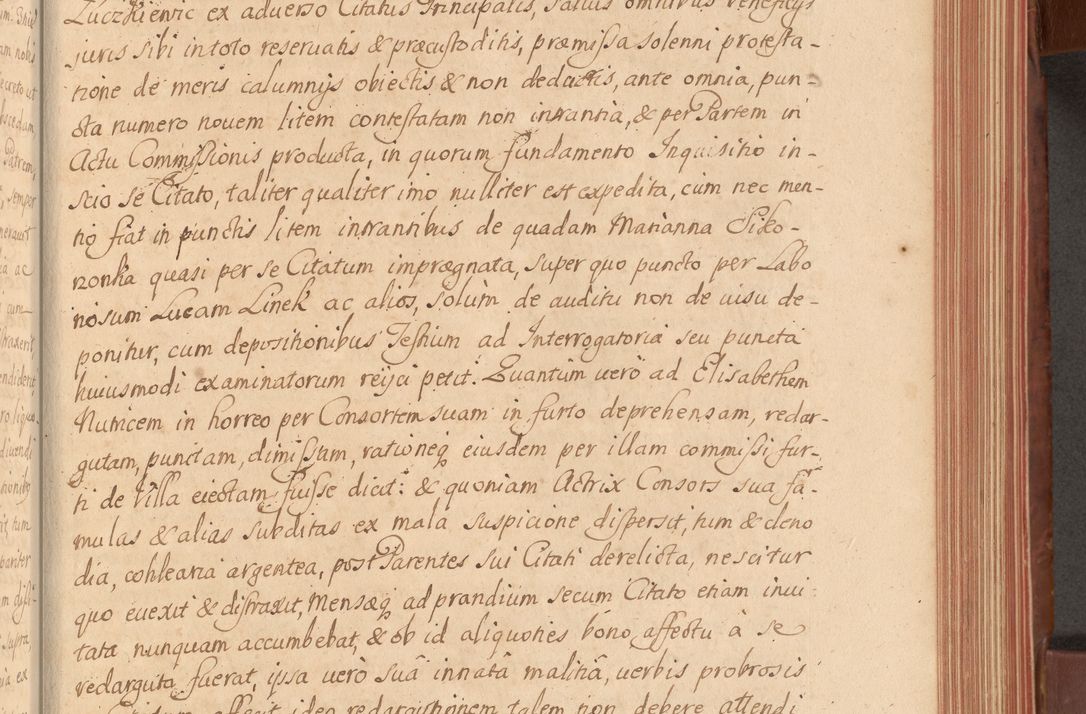 Łuczkiewic ex adverso Citatus Principalis, salvis omnibus beneficijs
juris sibi in toto reservatis & præcustoditis, præmissa solenni protesta-
tione de meris calumnijs obiectis & non deductis, ante omnia, pun-
cta numero novem litem contestatam non intrantia, & per Partem in
Actu Commissionis producta, in quorum fundamento Inquisitio in-
scio se Citato, taliter qualiter imo nulliter est expedita, cum nec men-
tio fiat in punctis litem intrantibus de quadam Marianna Siko-
ronka quasi per se Citatum imprægnata, super quo puncto per Labo
riosum Lucam Linek ac alios, solum de auditu non de visu de-
ponitur, cum depositionibus Testium ad Interrogatoria seu puncta
huiusmodi examinatorum reijci petit. Quantum verò ad Elisabethem
Nutricem in horreo per Consortem suam in furto deprehensam, redar-
gutam, punctam, dimissam, rationeq eiusdem per illam commissi fur-
ti de Villa eiectam fuisse dicit: & quoniam Actrix Consors sua fa-
mulas & alias subditas ex mala suspicione dispersit, tum & cleno
dia, cohlearia argentea, post Parentes sui Citati derelicta, nescitur
quo evexit & distraxit, Mensæq ad prandium secum Citato etiam invi-
tata nunquam accumbebat, & ob id aliquoties bono affectu à se
redarguta fuerat, ipsa verò suâ innatâ malitiâ, verbis probrosis
affecit, ideo redargutionem talem non debere attendi